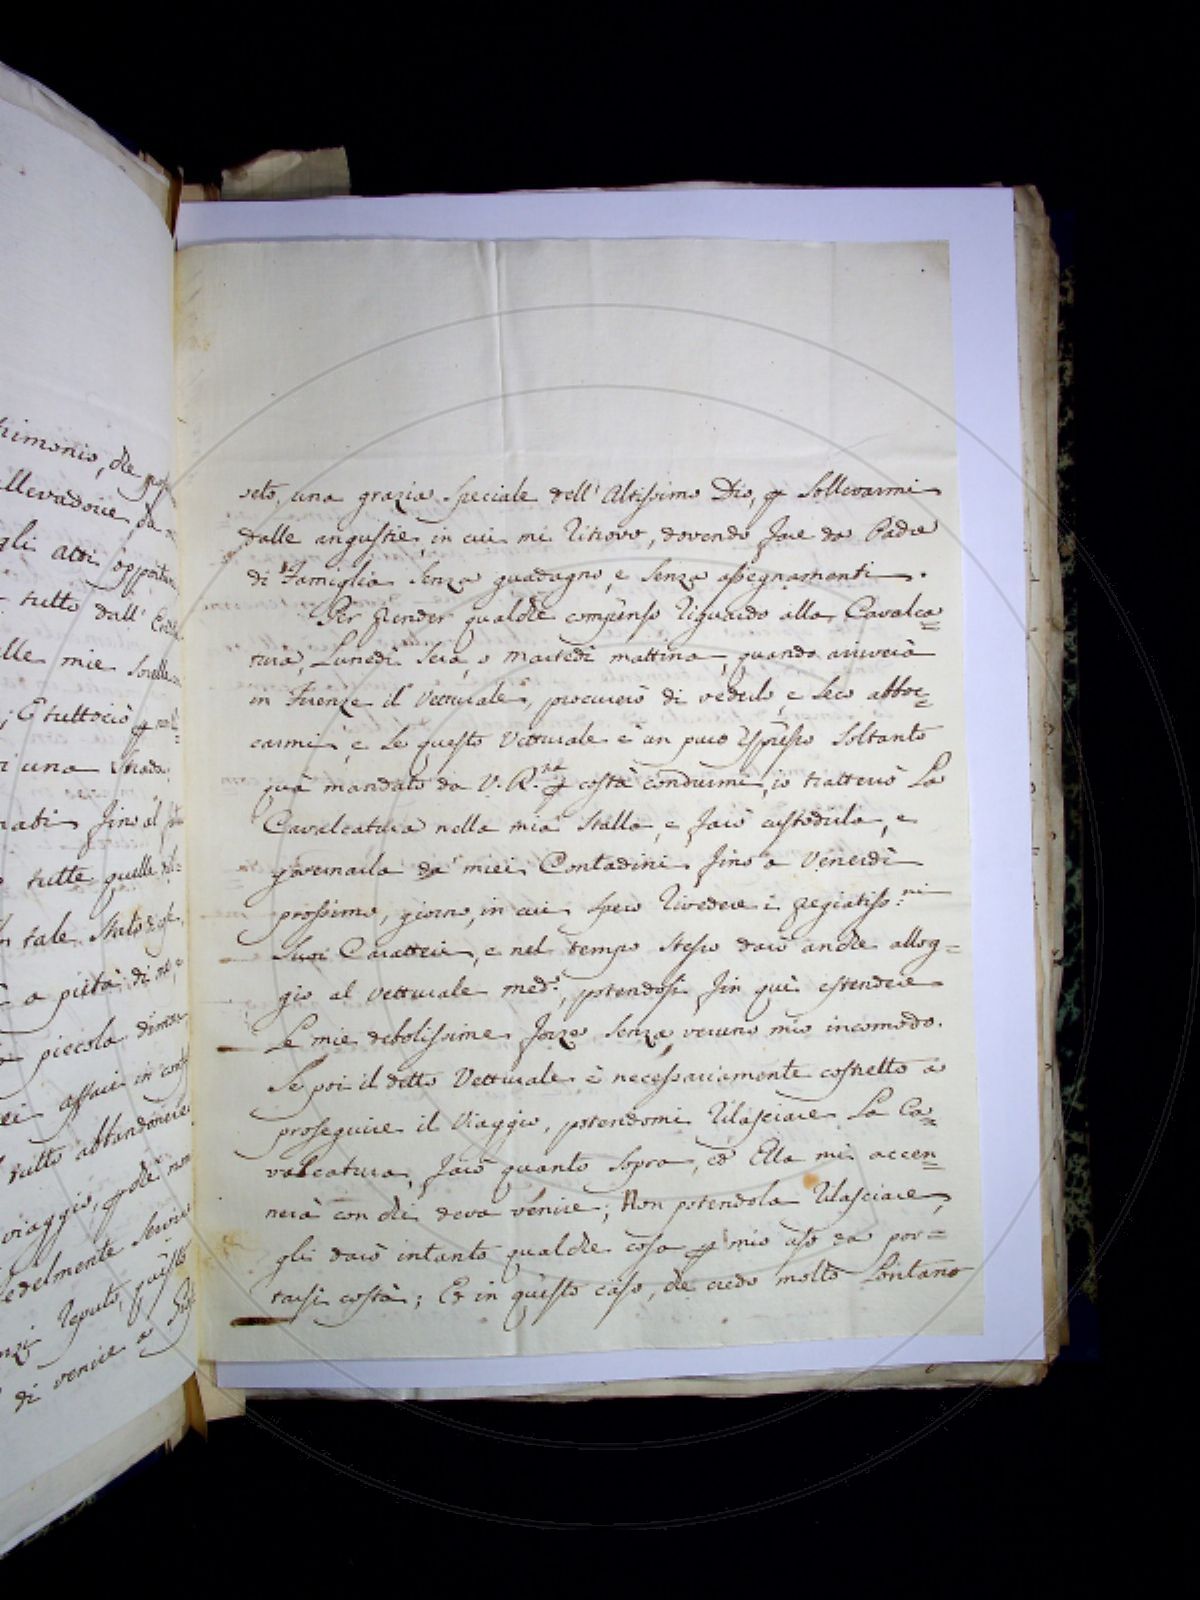 trimonio, che ques
llevadorie da
gli atti opportun
tutto dall'
lle mie Sorelle
; E tuttociò p
i una Strada
rati fino al
tutte quelle
n tale Stato di
a pietà di me, e
piccola dimora
ei assai in
tutto abbandonare
viaggio, pchè non
edelmente Servir
nzi reputo, questo
di venire a
seto, una grazia Speciale dell' Altissimo Dio, p Sollevarmi
dalle angustie, in cui mi ritrovo, dovendo fare da Padre
di Famiglia Senza guadagno, e Senza assegnamenti.
Per prender qualche compenso riguardo alla Cavalca=
tura, Lunedì Sera, o Martedì mattina, quando arriverà
in Firenze il Vetturale, procurerò di vederlo, e Seco abboc=
carmi, e Se questo Vetturale è un puro Espresso Soltanto
quà mandato da V. R.za p costà condurmi, io tratterrò La
Cavalcatura nella mia Stalla, e farò custodirla, e
governarla da' miei Contadini fino a Venerdì
prossimo, giorno, in cui Spero rivedere i pregiatiss.mi
Suoi Caratteri, e nel tempo Stesso darò anche allog=
gio al Vetturale med.o, potendosi fin qui estendere
Le mie debolissime forze Senza veruno mio incomodo.
Se poi il detto Vetturale è necessariamente costretto a
proseguire il Viaggio, potendomi rilasciare La Ca=
valcatura, farò quanto Sopra, ed Ella mi accen=
nerà con chi deva venire; Non potendola rilasciare,
gli darò intanto qualche cosa p mio uso da por=
tarsi costà; Ed in questo caso, che credo molto Lontano